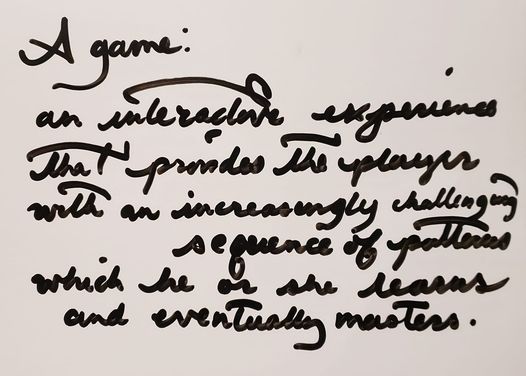 A game:
an interactive experience
that provides the player
with an increasingly challenging
sequence of patterns
which he or she learns
and eventually masters.